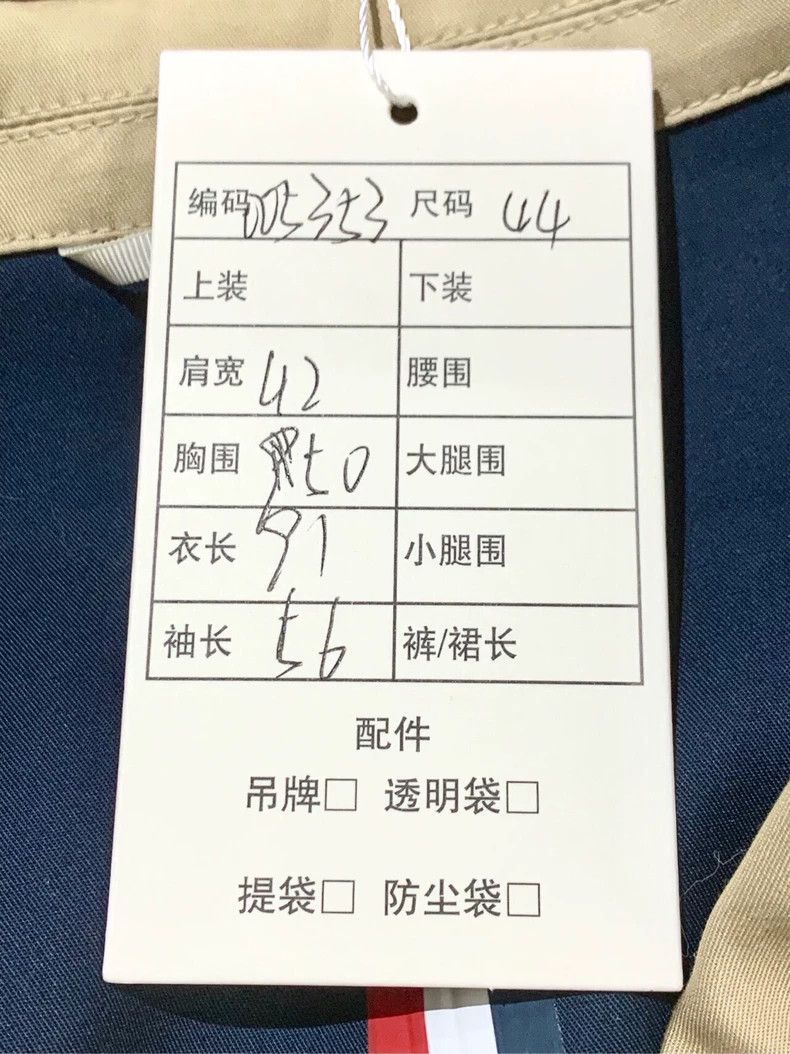 编码 005353 尺码 44
上装 下装
肩宽 42 腰围
胸围 50 大腿围
衣长 91 小腿围
袖长 56 裤/裙长
配件
吊牌□ 透明袋□
提袋□ 防尘袋□